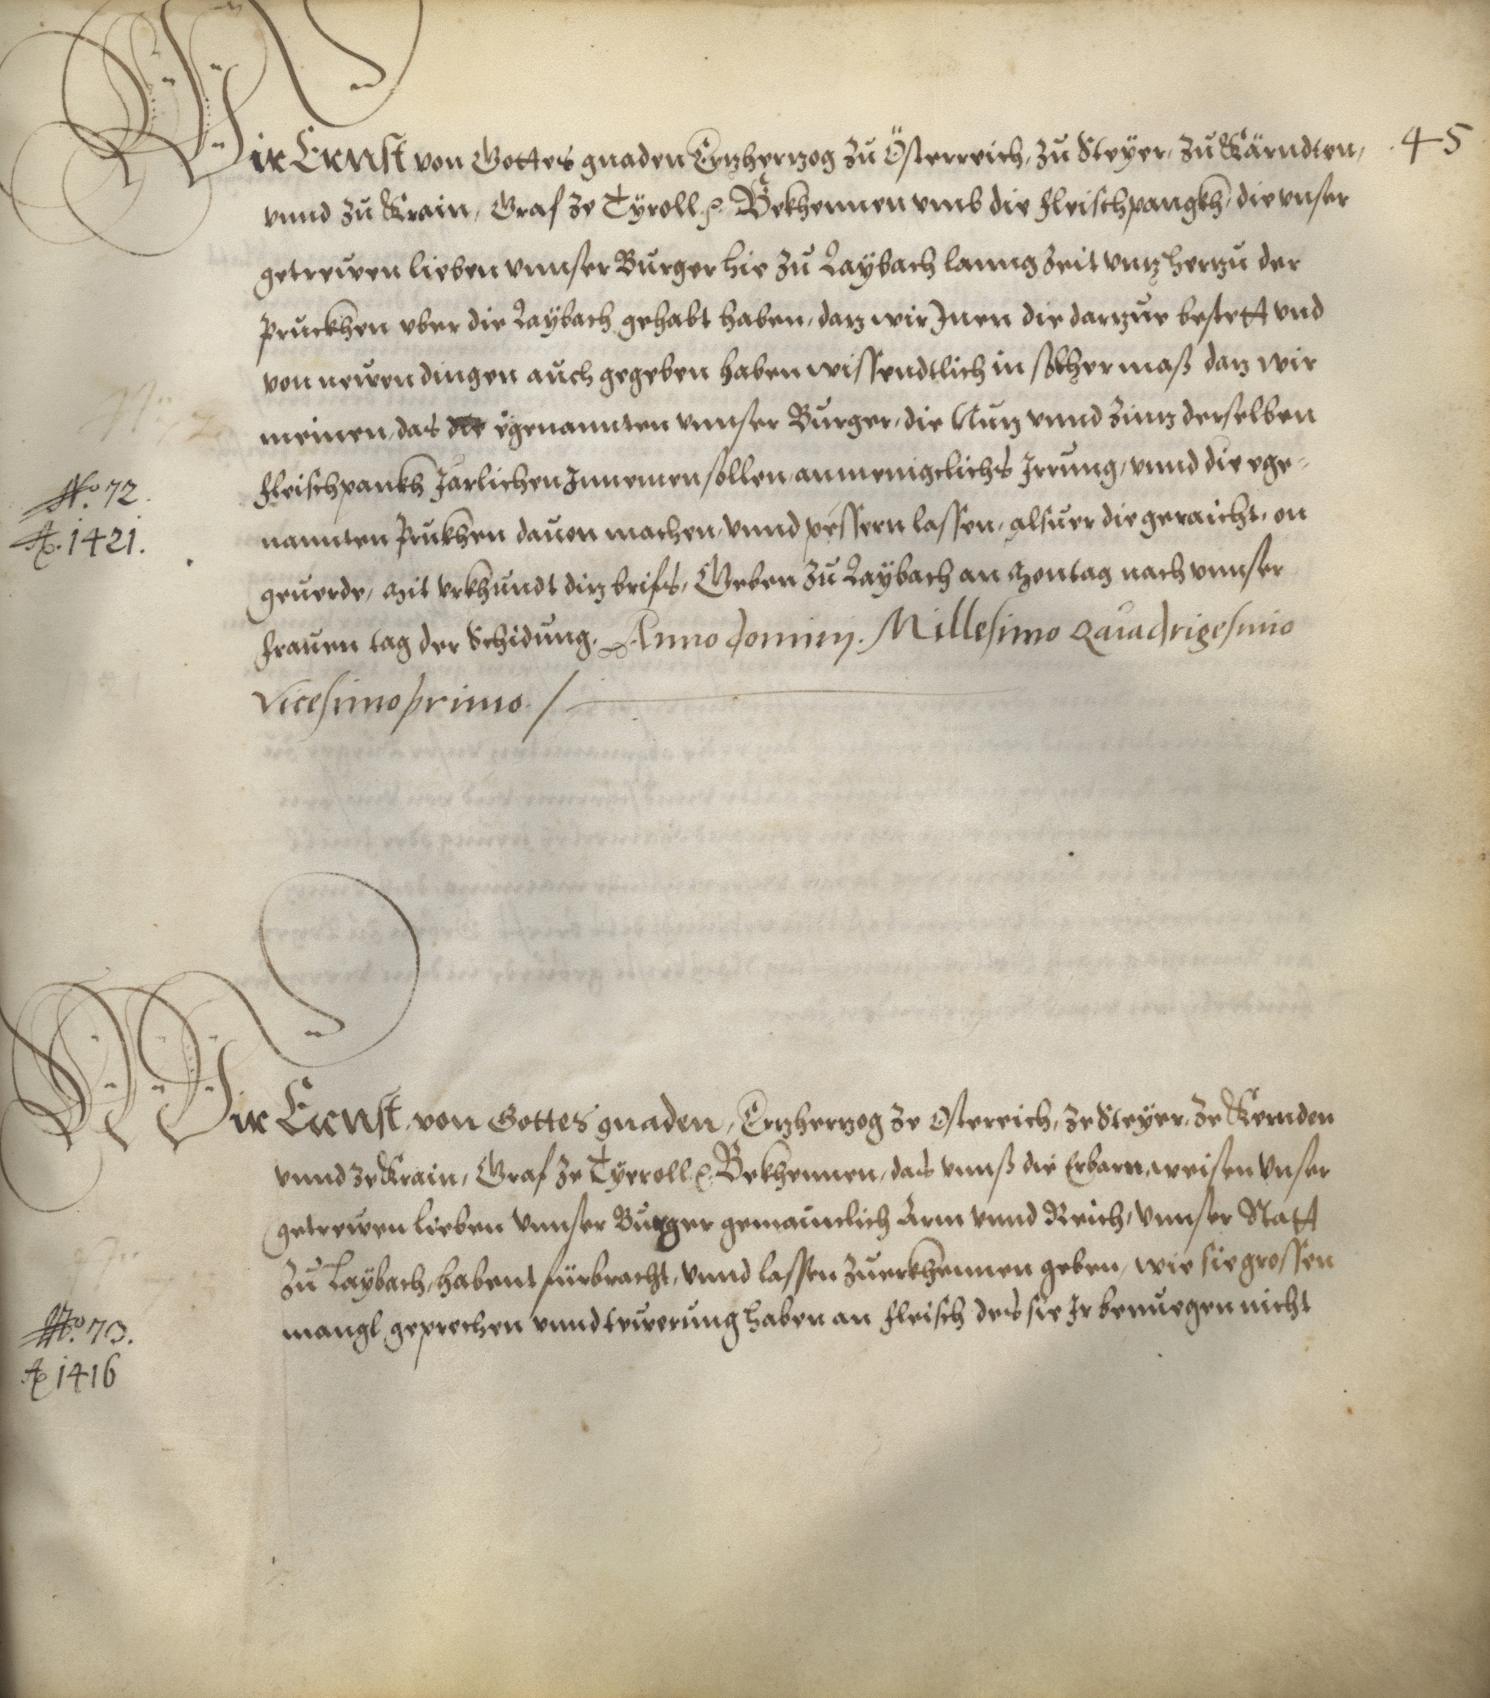 45
Wir Ernst von Gottes gnaden Ertzhertzog zu Österreich, zu Steÿer, zu Kärndten,
vnnd zu Krain, Graf ze Tÿroll &c. Bekhennen vmb die fleischpangkh, die vnser
getrewen lieben vnnser Burger hie zu Laÿbach lanng zeit vntz hertzu der
Pruckhen vber die Laÿbach gehabt haben, datz wir Jnen die dartzue bestett vnd
von newen dingen auch gegeben haben wissendtlich in solher maß datz wir
meinen, das die egenannten vnnser Burger, die Nutz vnnd Zinnß derselben
fleischpankh Järlichen Innemen sollen an menigclichs Irrung, vnnd die ege-
nannten Prukhen dauon machen, vnnd pessern lassen, alsuer die geraicht, on
geuerde, Mit vrkhundt ditz brifs, Geben zu Laÿbach an Montag nach vnnser
frauen tag der Schidung. Anno dominj. Millesimo Quadrigesimo
Vicesimo primo. /
No. 72.
Ao. 1421.
Wir Ernst, von Gottes gnaden, Ertzhertzog ze Ostereich, ze Steÿer, ze Kernden
vnnd ze Krain, Graf ze Tÿeroll &c. Bekhennen, das vnnß die Erbarn, weisen Vnser
getrewen lieben Vnnser Burger gemainclich Arm vnnd Reich, Vnnser Statt
zu Laÿbach, habent fürbracht, vnnd lassen zuerkhennen geben, wie sie grossen
mangl geprechen vnnd tewerung haben an fleisch des sie Jr benuegen nicht
No. 73.
Ao 1416